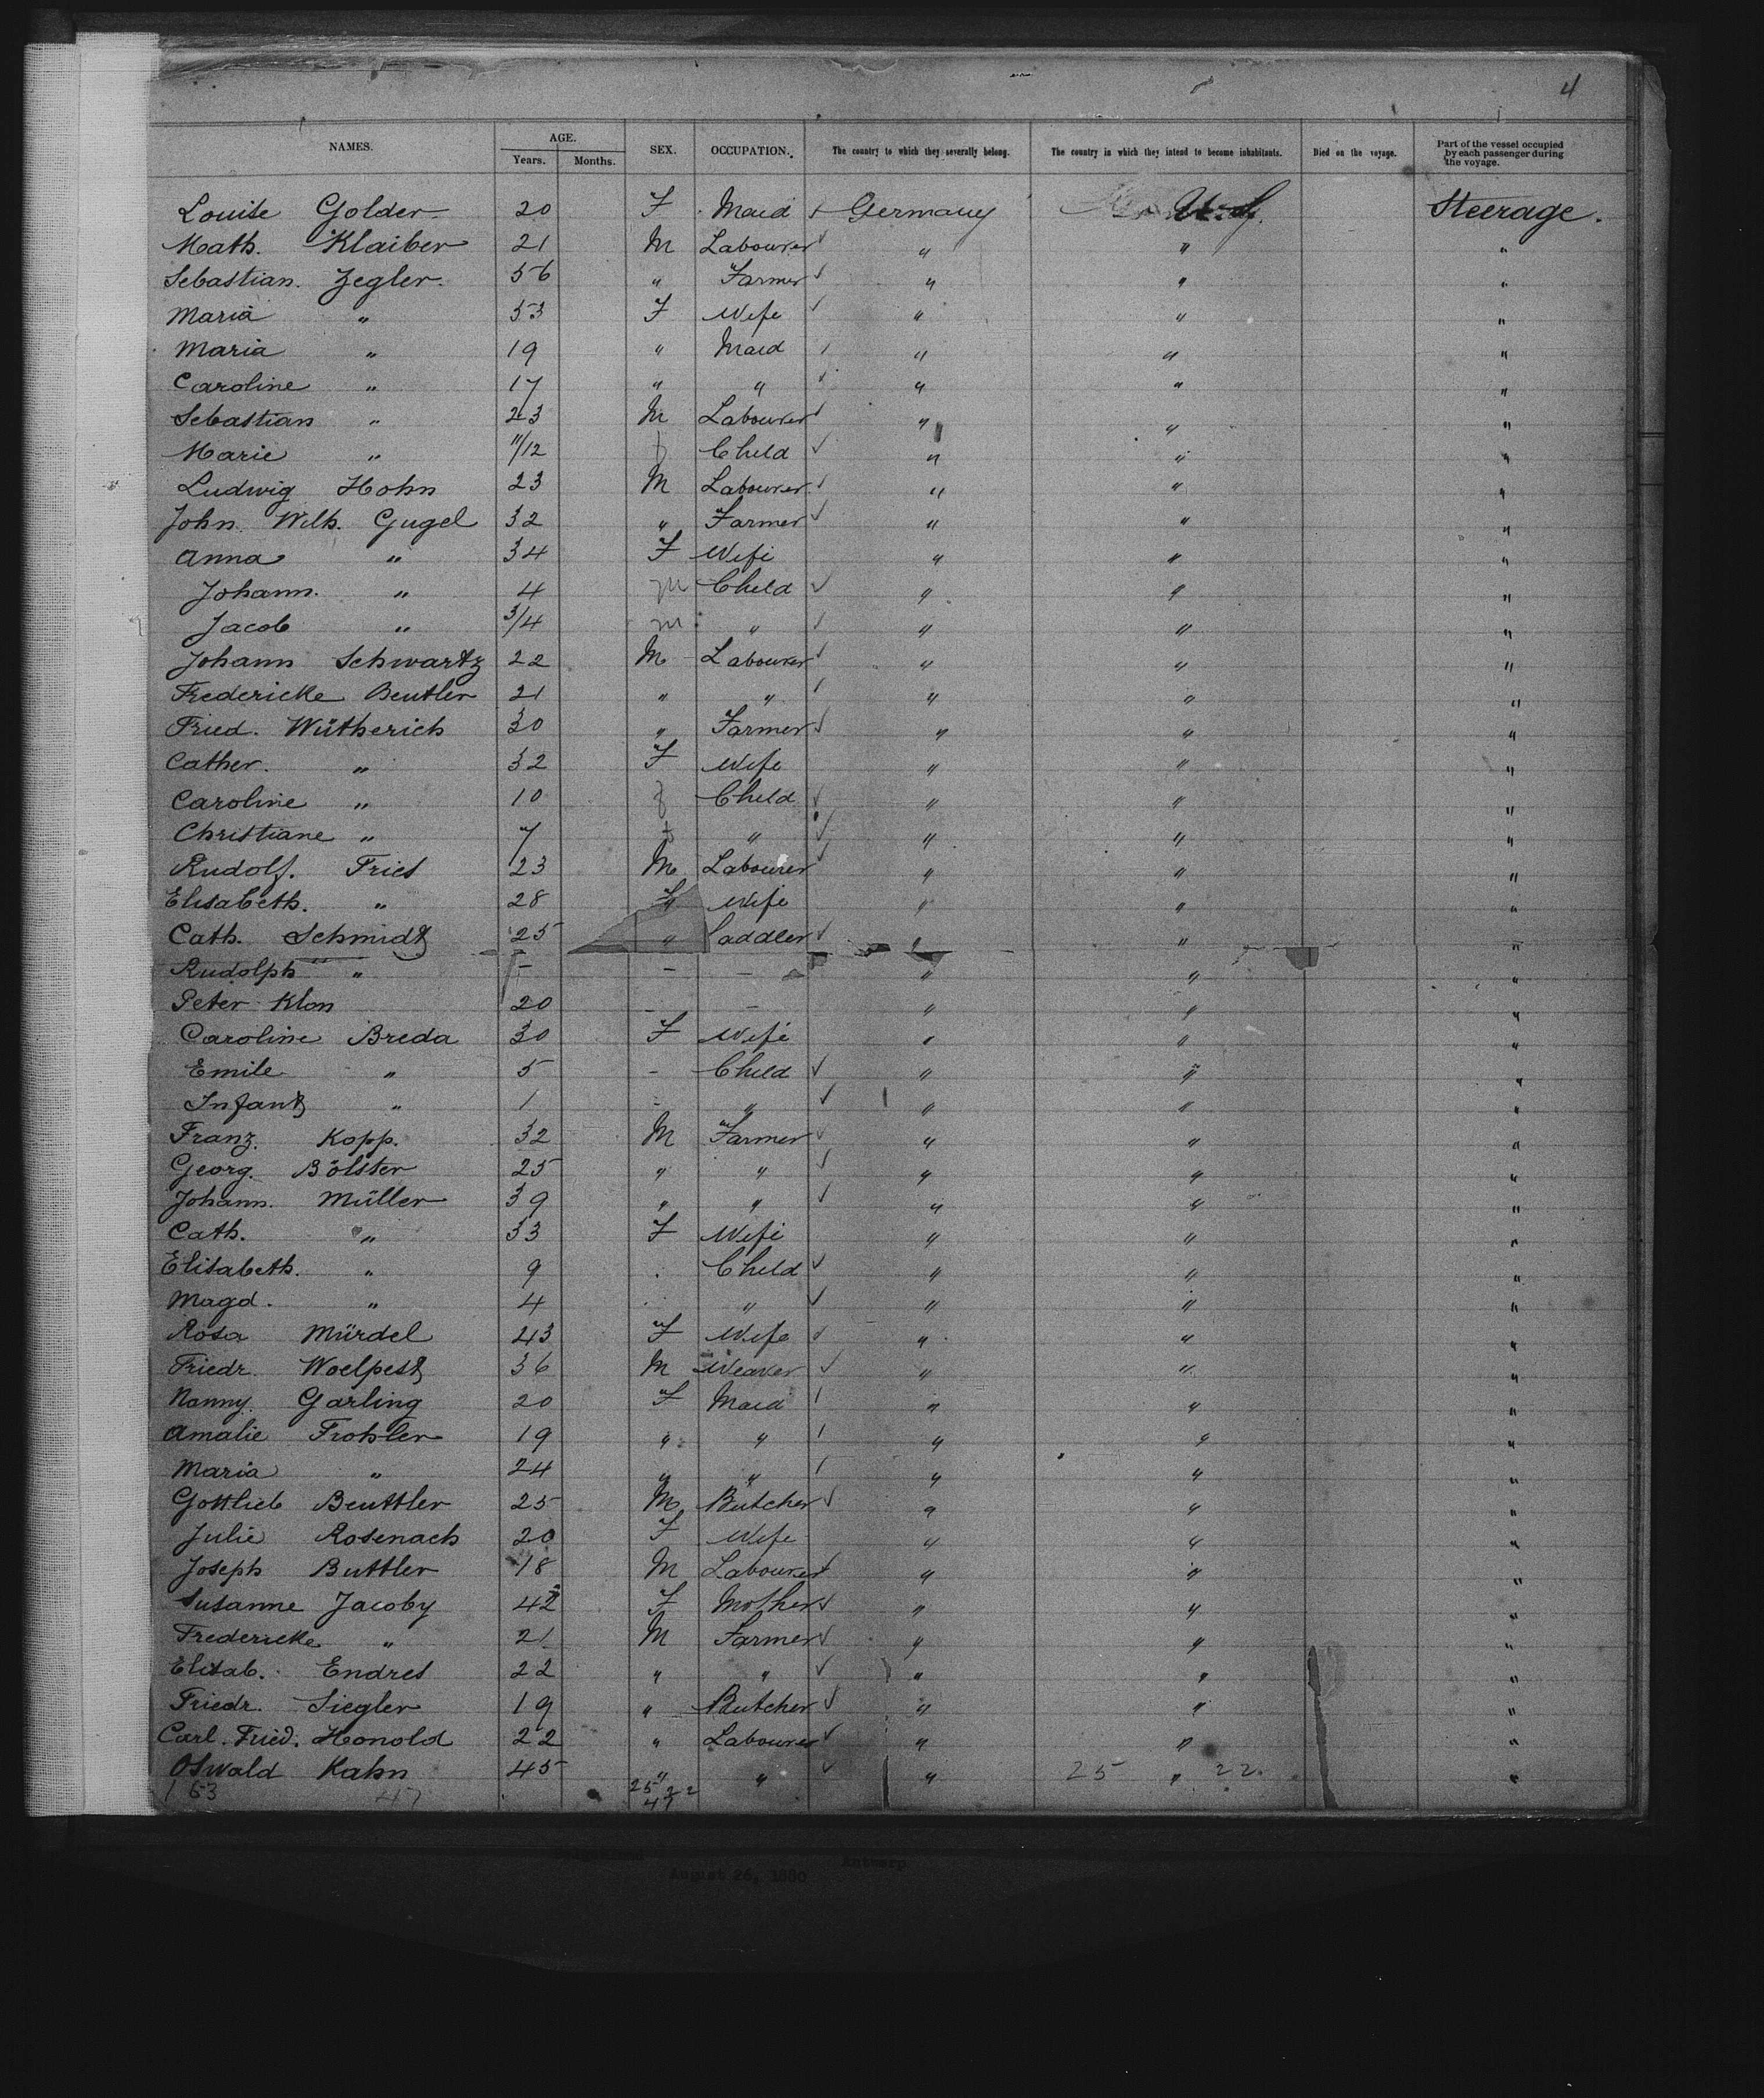 4
NAMES. AGE. SEX. OCCUPATION. The country to which they severally belong. The country in which they intend to become inhabitants. Died on the voyage. Part of the vessel occupied by each passenger during the voyage.
Years. Months.
Louise Golder 20 F Maid Germany U.S. Steerage.
Math. Klaiber 21 M Labourer " " "
Sebastian. Zegler. 56 " Farmer " " "
Maria " 53 F Wife " " "
Maria " 19 " Maid " " "
Caroline " 17 " " " " "
Sebastian " 23 M Labourer " " "
Marie " 11/12 f Child " " "
Ludwig Hohn 23 M Labourer " " "
John Wilh. Gugel 32 " Farmer " " "
Anna " 34 F Wife " " "
Johann. " 4 m Child " " "
Jacob " 3/4 m " " " "
Johann Schwartz 22 M Labourer " " "
Fredericke Beutler 21 " " " " "
Fried. Wütherich 30 " Farmer " " "
Cather. " 32 F Wife " " "
Caroline " 10 f Child " " "
Christiane " 7 f " " " "
Rudolf. Fries 23 M Labourer " " "
Elisabeth. " 28 F Wife " " "
Cath. Schmidt 25 " Saddler " "
Rudolph " - - - " " "
Peter Klon 20 - - " " "
Caroline Breda 30 F Wife " " "
Emile " 5 - Child " " "
Infant " 1 - " " " "
Franz. Kopp. 32 M Farmer " " "
Georg. Bölster 25 " " " " "
Johann. Müller 39 " " " " "
Cath. " 33 F Wife " " "
Elisabeth. " 9 Child " " "
Magd. " 4 " " " "
Rosa Mürdel 43 F Wife " " "
Friedr. Woelpest 36 M Weaver " " "
Nanny. Garling 20 F Maid " " "
Amalie Frohler 19 " " " " "
Maria " 24 " " " " "
Gottlieb Beuttler 25 M Butcher " " "
Julie Rosenach 20 F Wife " " "
Joseph Buttler 18 M Labourer " " "
Susanne Jacoby 42 F Mother " " "
Fredericke " 21 M Farmer " " "
Elisab. Endres 22 " " " " "
Friedr. Siegler 19 " Butcher " " "
Carl. Fried. Honold 22 " Labourer " " "
Oswald Kahn 45 " " " 25 " 22 "
163 47 25 22
47
Antwerp
August 26, 1880